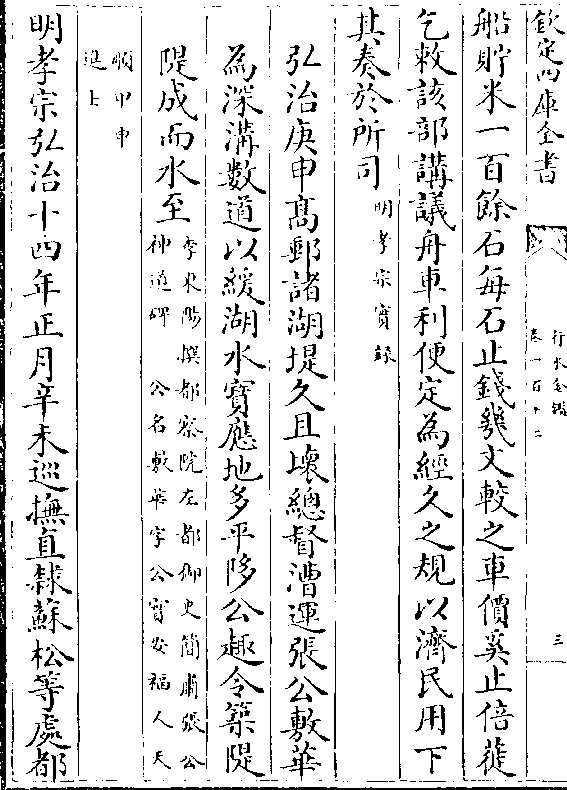 欽定四庫全書
行水金鑑
卷一百十二
三
船貯米一百餘石每石止錢幾文較之車價奚止倍蓰
乞敕該部講議舟車利便定為經久之規以濟民用下
其奏於所司
明孝宗實錄
弘治庚申髙郵諸湖堤久且壊總督漕運張公敷華
為深溝數道以緩湖水寳應地多平陊公趣令築隄
隄成而水至
李東陽撰都察院左都御史簡肅張公
神道碑 公名敷華字公寳安福人天
順甲申
進士
明孝宗弘治十四年正月辛未巡撫直隸蘇松等處都